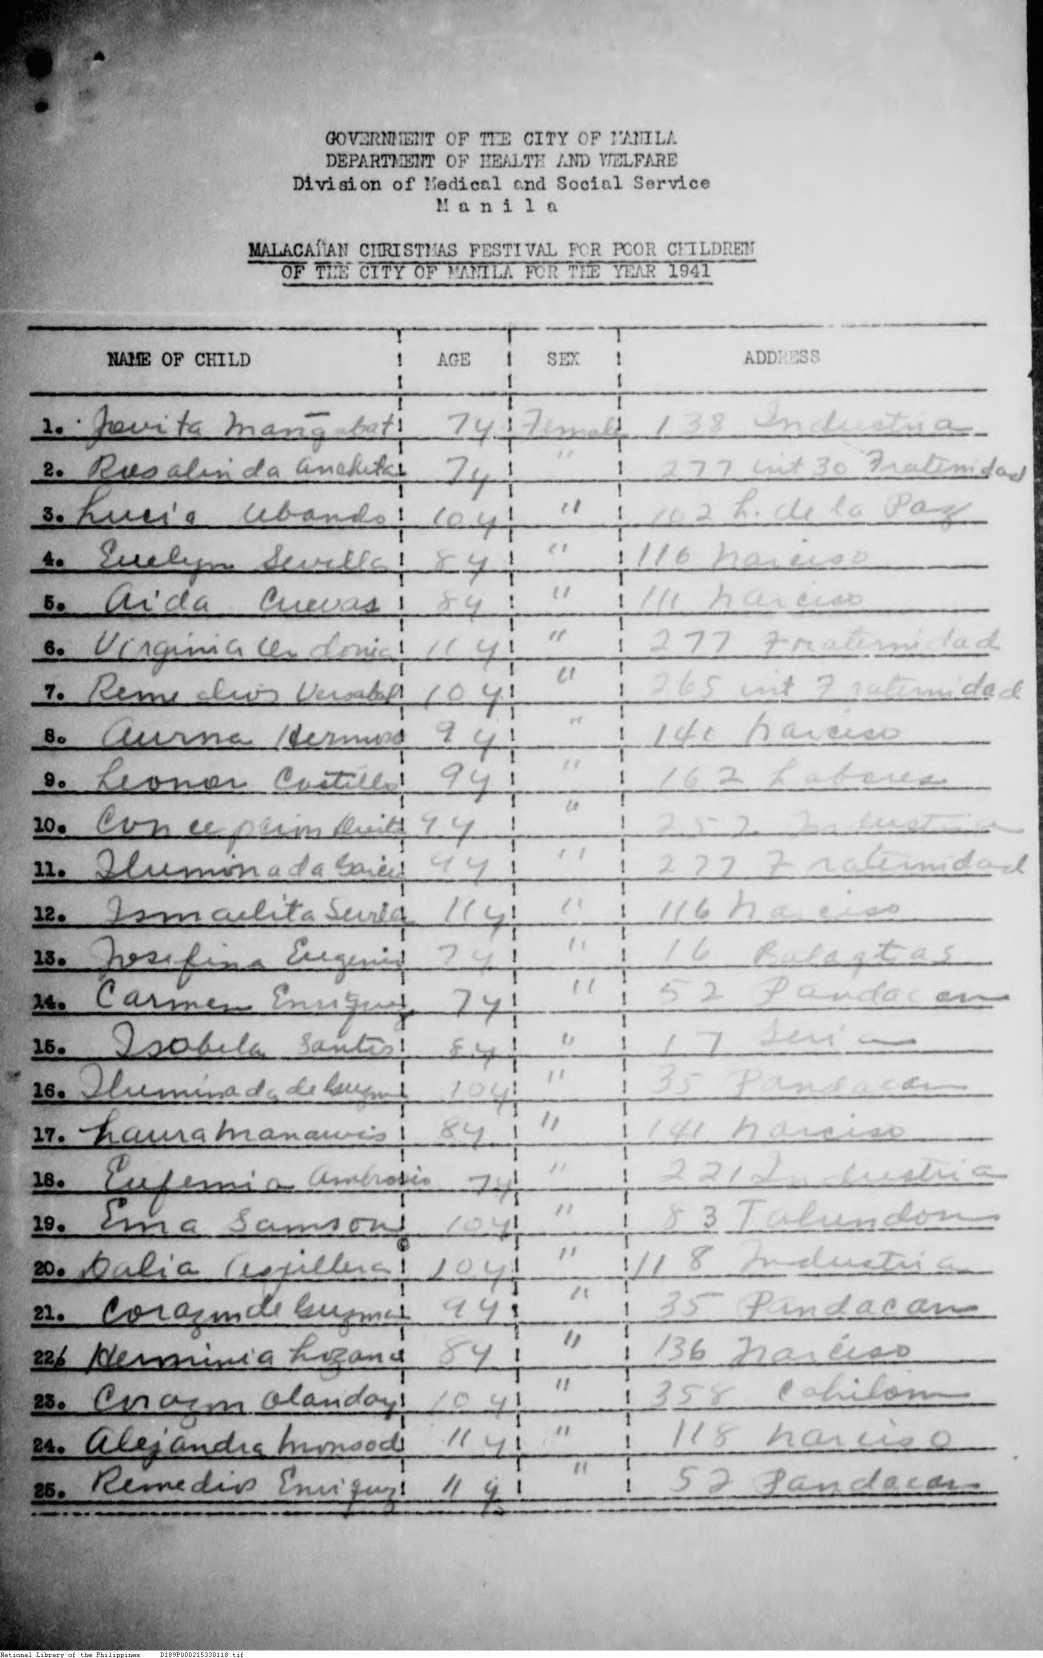 GOVERNMENT OF THE CITY OF MANILA
DEPARTMENT OF HEALTH AND WELFARE
Division of Medical and Social Service
M a n i l a
MALACAÑAN CHRISTMAS FESTIVAL FOR POOR CHILDREN
OF THE CITY OF MANILA FOR THE YEAR 1941
NAME OF CHILD AGE SEX ADDRESS
1. Jovita Mangabat 7y Female 138 Industria
2. Rosalinda Ancheta 7y " 277 int 30 Fraternidad
3. Lucia Ubando 10y " 102 L. de la Paz
4. Evelyn Sevilla 8y " 116 Narciso
5. Aida Cuevas 8y " 111 Narciso
6. Virginia 11y " 277 Fraternidad
7. Remedios 10y " 265 int Fraternidad
8. Aurna Hermoso 9y " 140 Narciso
9. Leonor Castillo 9y " 162 Labores
10. Concepcion 9y " 252 Industria
11. Iluminada Garcia 9y " 277 Fraternidad
12. Ismaelita Sevilla 11y " 116 Narciso
13. Josefina Eugenio 7y " 16 Balagtas
14. Carmen Enriquez 7y " 52 Pandacan
15. Isabela Santos 8y " 17
16. Iluminada de Guzman 10y " 35 Pandacan
17. Laura Manawis 8y " 141 Narciso
18. Eufemia Ambrosio 7y " 221 Industria
19. Ema Samson 10y " 83
20. Dalia Aspillera 10y " 118 Industria
21. Corazon de Guzman 9y " 35 Pandacan
22. Herminia Lozana 8y " 136 Narciso
23. Corazon Olanday 10y " 358
24. Alejandra Monsod 11y " 118 Narciso
25. Remedios Enriquez 11y " 52 Pandacan
National Library of the Philippines D189P000215330118.tif